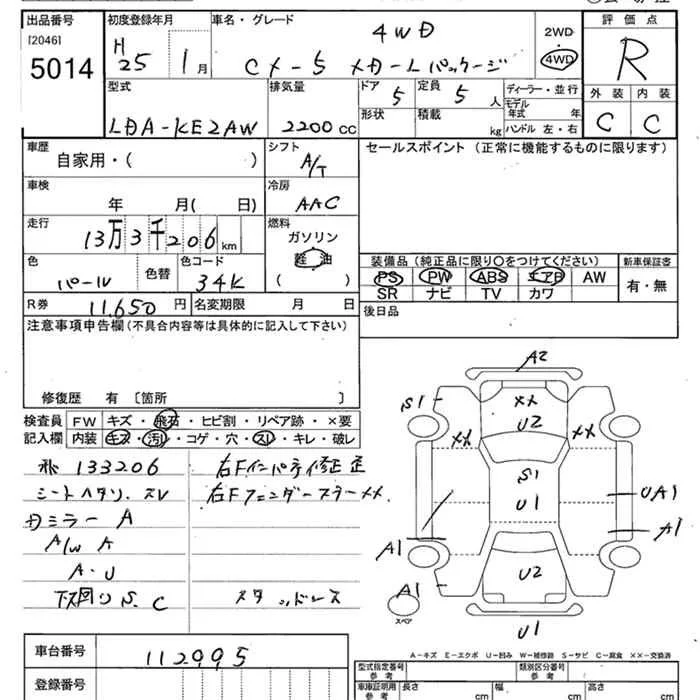 出品番号
[2046]
5014
初度登録年月
H
25 1月
車名・グレード
4WD
CX-5 XD-Lパッケージ
2WD
4WD
評価点
R
外装 内装
C C
型式
LDA-KE2AW
排気量
2200cc
ドア
5
定員
5 人
ディーラー・並行
モデル
年式 年
形状
積載
kg
ハンドル 左・右
車歴
自家用・( )
シフト
A/T
セールスポイント (正常に機能するものに限ります)
車検
年 月( 日)
冷房
AAC
走行
13万3千206km
燃料
ガソリン
軽油
( )
色
パール
色替
色コード
34K
装備品 (純正品に限り○をつけてください)
新車保証書
PS PW ABS エアB AW
有・無
SR ナビ TV カワ
R券
11,650 円
名変期限 月 日
後日品
注意事項申告欄 (不具合内容等は具体的に記入して下さい)
修復歴 有 [箇所 ]
検査員
記入欄
FW キズ・飛石・ヒビ割・リペア跡・×要
内装 キズ・汚レ・コゲ・穴・スレ・キレ・破レ
133206
シートヘタリ、スレ
Dミラー A
A/W A
A・U
下廻り S、C
右Fインパネ修正
右Fフェンダーステー XX
スタッドレス
A2
S1
XX
U2
XX
XX
S1
U1
UA1
A1
A1
U2
A1
スペア
U1
A-キズ E-エクボ U-凹み W-補修跡 S-サビ C-腐食 XX-交換済
車台番号
112995
登録番号
型式指定番号
参考
類別区分番号
参考
車庫証明用
参考
長さ cm
幅 cm
高さ cm